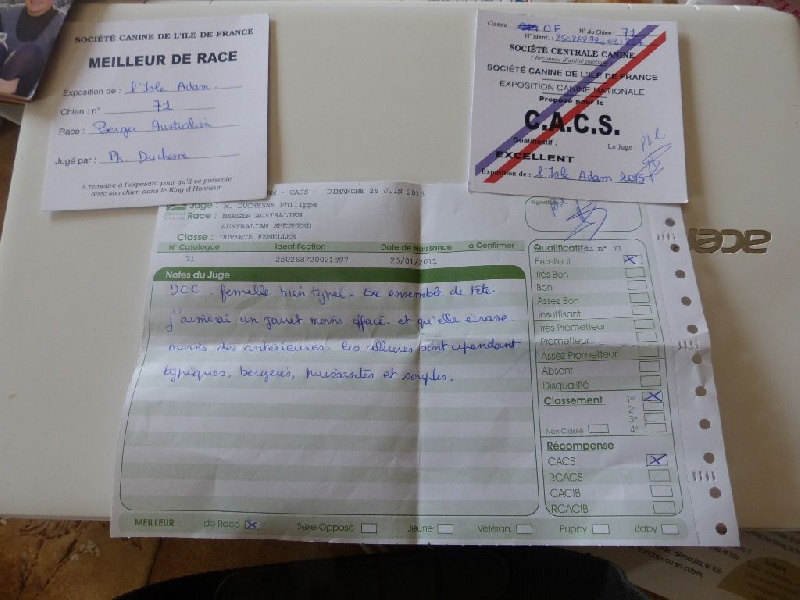 SOCIÉTÉ CANINE DE L'ILE DE FRANCE
MEILLEUR DE RACE
Exposition de : l'Isle Adam
Chien : n° 71
Race : Berger Australien
Jugé par : Ph Duchesne
A remettre à l'exposant pour qu'il se présente
avec son chien dans le Ring d'Honneur
Classe : OF N° du Chien : 71
N° Ident :
SOCIÉTÉ CENTRALE CANINE
SOCIÉTÉ CANINE DE L'ILE DE FRANCE
EXPOSITION CANINE NATIONALE
Proposé pour le
C.A.C.S.
Qualificatif : Le Juge
EXCELLENT
Exposition de : l'Isle Adam 2015
acer
- CACS DIMANCHE 28 JUIN 2015
Juge : M. DUCHESNE Philippe
Race : BERGER AUSTRALIEN
AUSTRALIAN SHEPHERD
Classe : OUVERTE FEMELLES
N° Catalogue Identification Date de Naissance à Confirmer
71
Notes du Juge
DCC - femelle bien typée. Exc ensemble de tête.
J'aimerai un jarret moins effacé et qu'elle
moins des antérieures. Les allures sont cependant
typiques, bergères, puissantes et souples.
Qualificatifs n° 71
Excellent X
Très Bon
Bon
Assez Bon
Insuffisant
Très Prometteur
Prometteur
Assez Prometteur
Absent
Disqualifié
Classement 1er X
2e
3e
Non Classé 4e
Récompense
CACS X
RCACS
CACIB
RCACIB
MEILLEUR de Race X Sexe Opposé Jeune Vétéran Puppy Baby